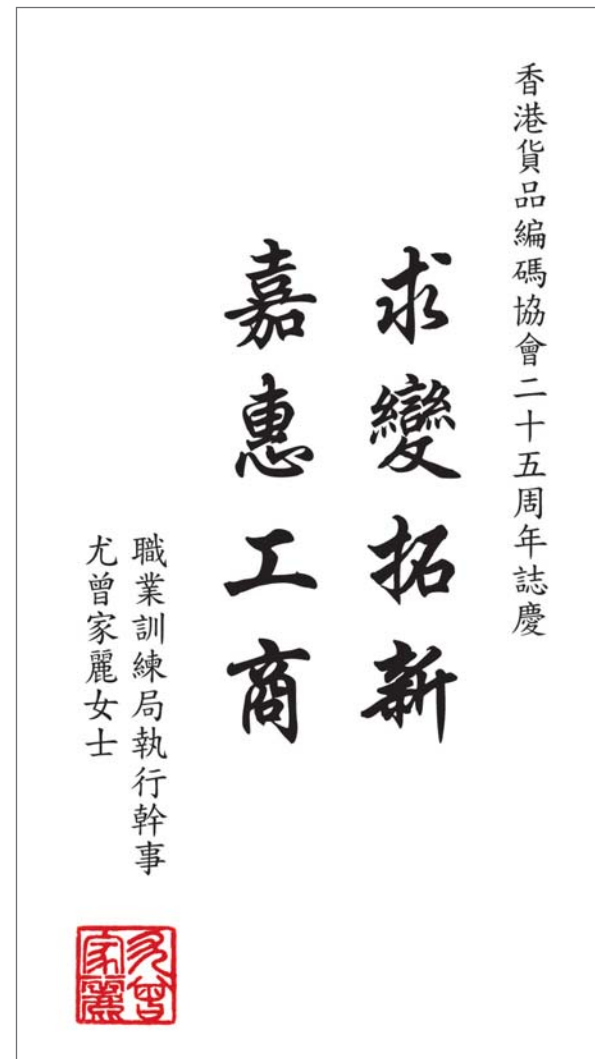 香港貨品編碼協會二十五周年誌慶
求變拓新
嘉惠工商
職業訓練局執行幹事
尤曾家麗女士
尤曾
家麗